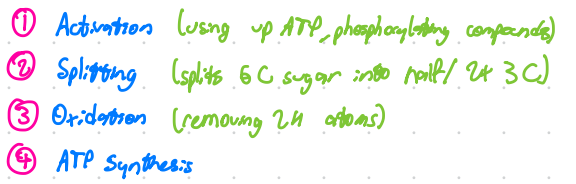 ① Activation (using up ATP, phosphorylating compounds)
② Splitting (splits 6C sugar into half / 2x 3C)
③ Oxidation (removing 2H atoms)
④ ATP Synthesis